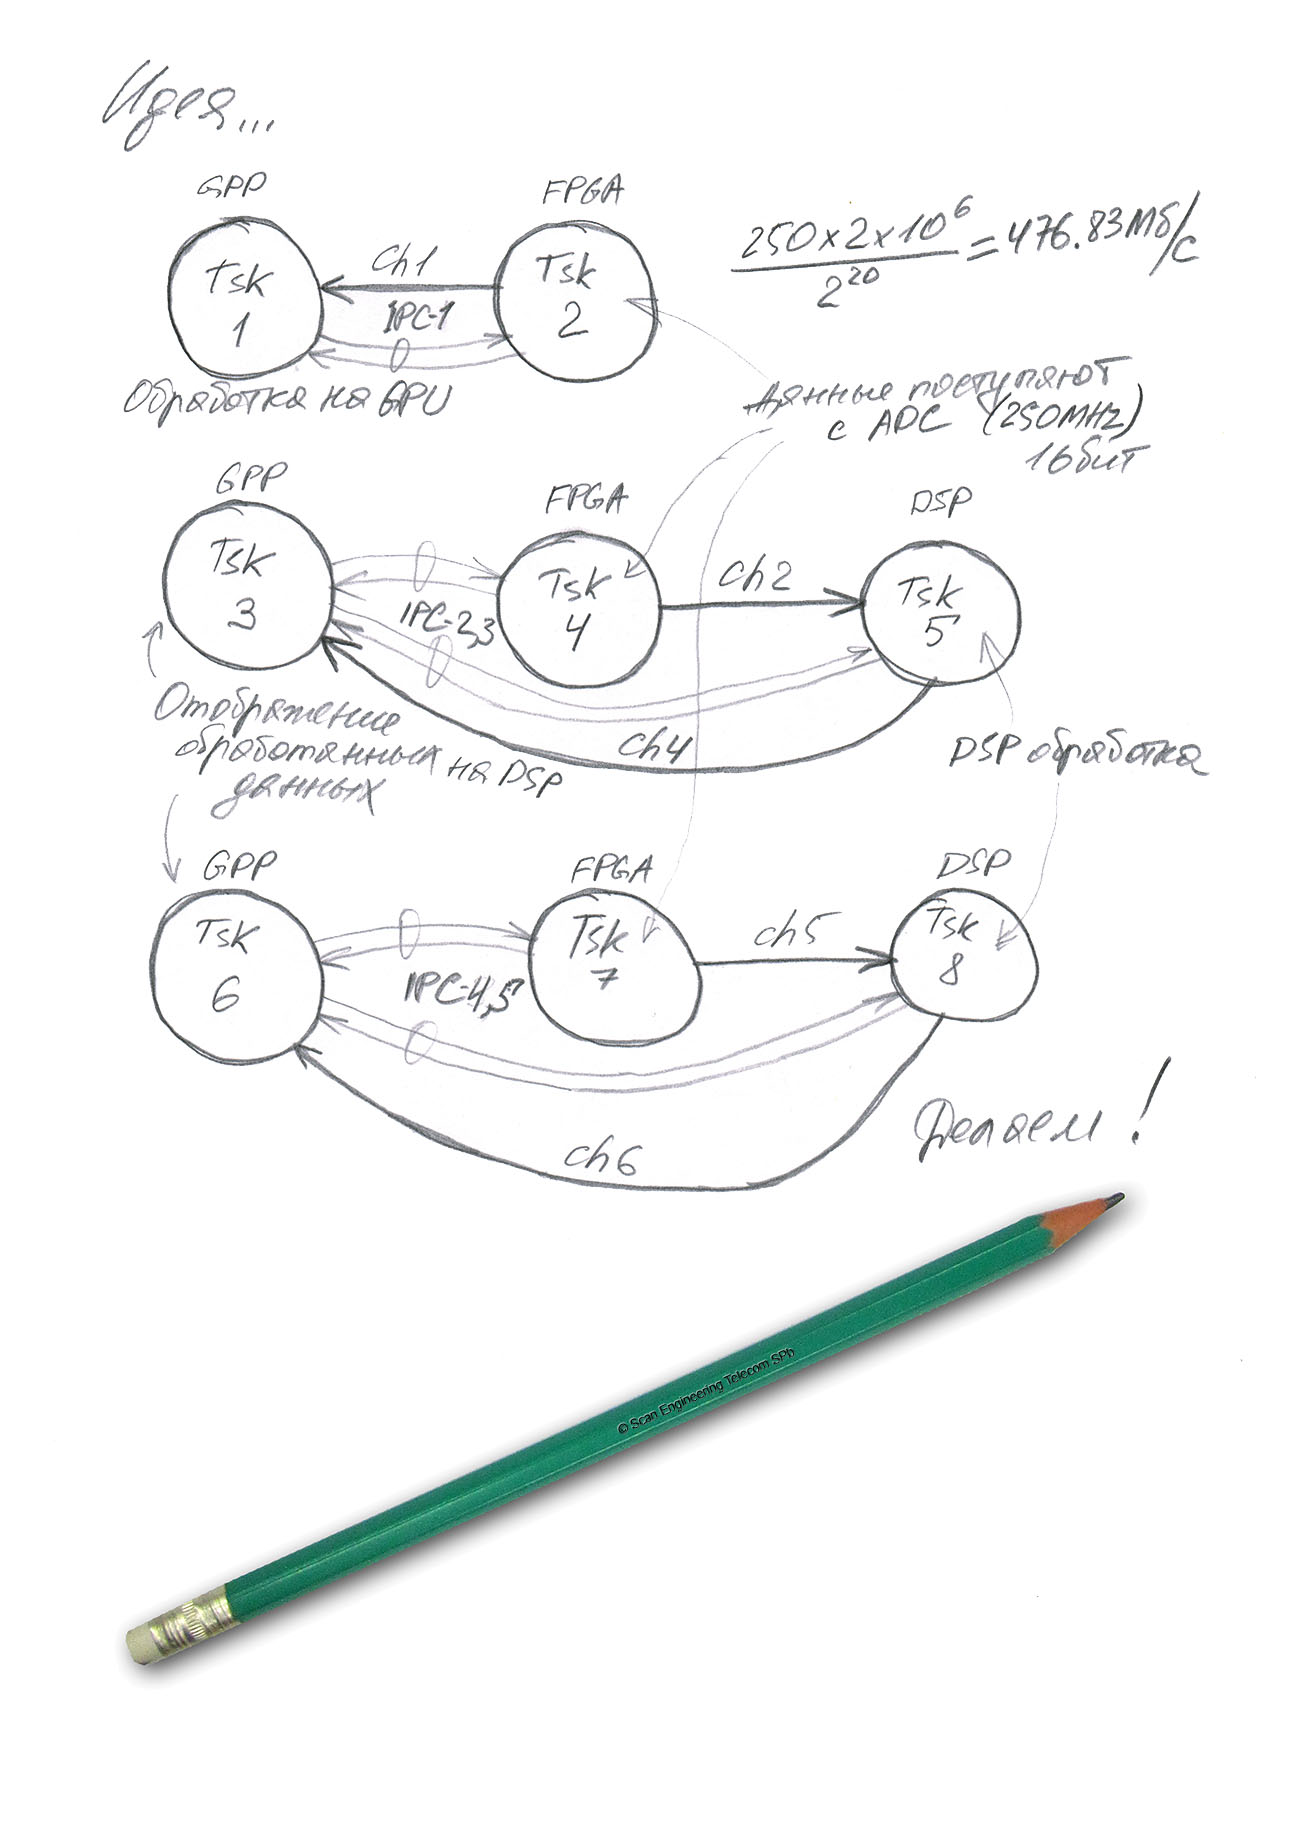 Идея...
GPP
FPGA
Tsk
1
ch1
IPC-1
Tsk
2
250x2x10⁶
2²⁰
=476.83Мб/с
Обработка на GPU
Данные поступяют
с ADC (250MHz)
16бит
GPP
FPGA
DSP
Tsk
3
IPC-2,3
Tsk
4
ch2
Tsk
5
ch4
Отображение
обработанных на DSP
данных
DSP обработка
GPP
FPGA
DSP
Tsk
6
IPC-4,5
Tsk
7
ch5
Tsk
8
ch6
Делаем!
© Scan Engineering Telecom SPb